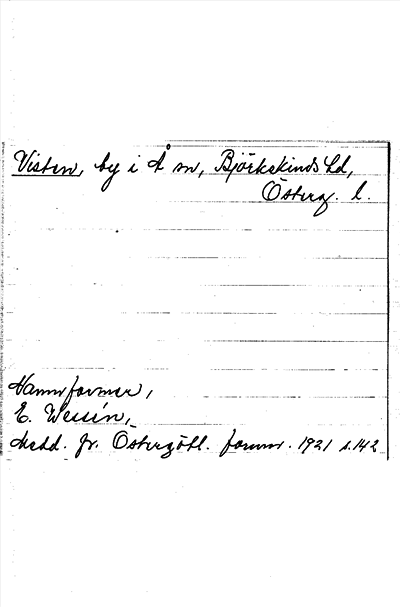 Visten, by i Å sn, Björkekinds hd,
Österg. l.
Namnformer,
E. Wessén,
Medd. fr. Östergötl. fornm. 1921 s. 142